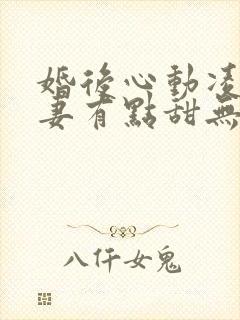 婚後心動凌
妻有點甜無
八仟女鬼